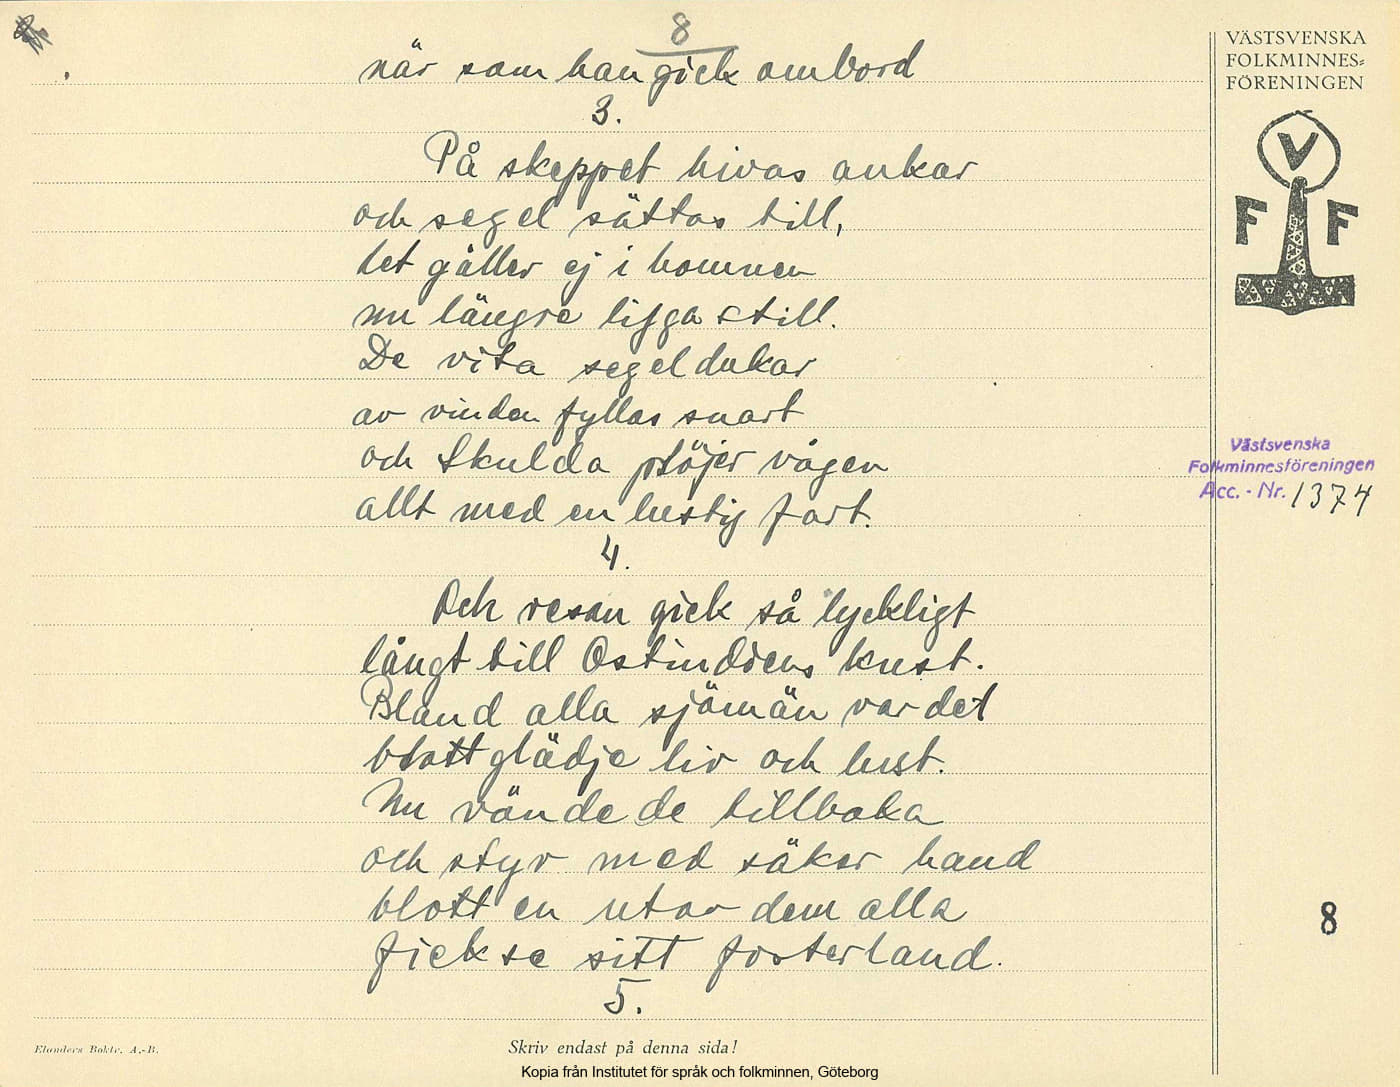 8
när som han gick ombord
3.
På skeppet hivas ankar
och segel sättas till,
det gäller ej i hamnen
nu längre ligga still.
De vita segeldukar
av vinden fyllas snart
och Skulda plöjer vågen
allt med en lustig fart.
4.
Och resan gick så lyckligt
långt till Ostindiens kust.
Bland alla sjömän var det
blott glädje liv och lust.
Nu vände de tillbaka
och styr med säker hand
blott en utav dem alla
fick se sitt fosterland.
5.
VÄSTSVENSKA
FOLKMINNES=
FÖRENINGEN
V
F F
Västsvenska
Folkminnesföreningen
Acc. - Nr. 1374
8
Elanders Boktr. A.-B.
Skriv endast på denna sida!
Kopia från Institutet för språk och folkminnen, Göteborg